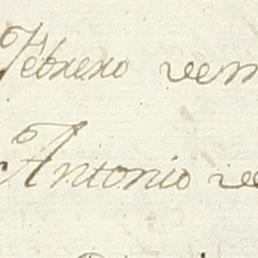 Febrero vem
Antonio ve